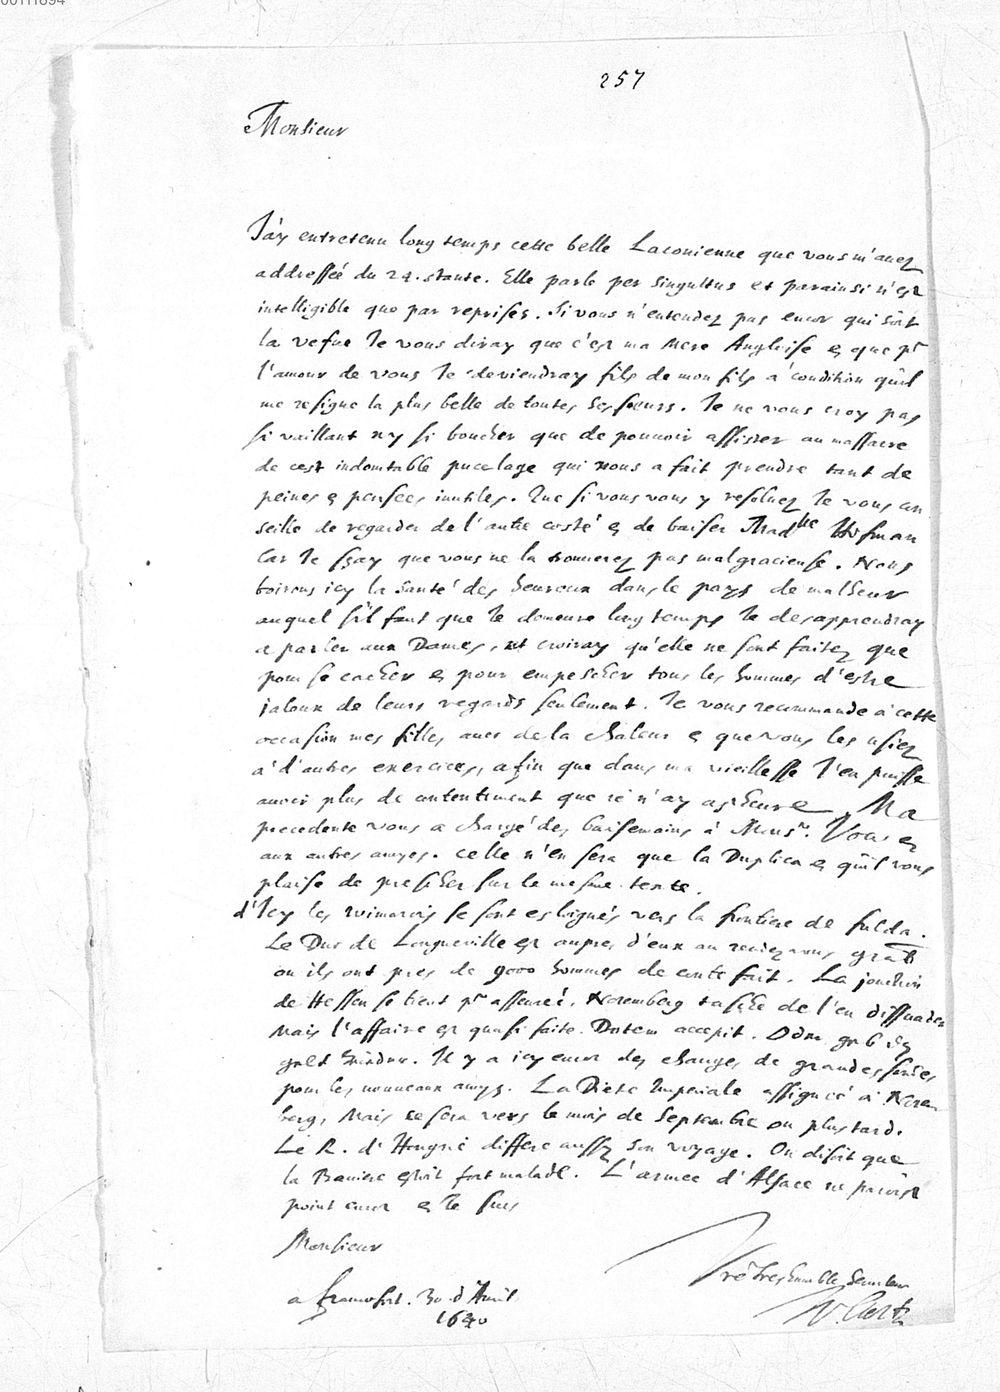 00111894
257
Monsieur
J'ay entretenu long temps cette belle Laconienne que vous m'avez
addressée du 24. stante. Elle parle per singultus et parainsi n'est
intelligible que par reprises. Si vous n'entendez pas encor qui soit
la vefue Je vous diray que c'est ma Mere Angloise & que pr
l'amour de vous Je deviendray fils de mon fils a condition quil
me resigne la plus belle de toutes ses soeurs. Je ne vous croy pas
si vaillant ny si boucher que de pouvoir assister au massacre
de cest indomtable pucelage qui nous a fait prendre tant de
peines & pensées inutiles. Que si vous vous y resoluez Je vous con
seille de regarder de l'autre costé & de baiser Madlle Hofman
Car Je sçay que vous ne la trouuerez pas malgracieuse. Nous
boirons icy la santé des heureux dans le pays de malheur
auquel s'il faut que Je demeure long temps Je desapprendray
a parler aux Dames, et croiray qu'elle ne sont faites que
pour se cacher & pour empescher tous les hommes d'estre
jaloux de leurs regards seulement. Je vous recommande a cette
occasion mes filles auec de la chaleur & que vous les usiez
a d'autres exercices, afin que dans ma vieillesse J'en puisse
auoir plus de contentement que je n'ay asheure. Ma
precedente vous a chargé des baisemains à Monsr.
aux autres amys. Celle n'en sera que la Duplica & quil vous
plaise de prescher sur le mesme texte.
d'Icy les Wimarois se sont esloignés vers la frontiere de fulda.
Le Duc de Longueville est aupres d'eux au rendezvous
ou ils ont pres de 9000 hommes de conte fait. La jonction
de Hessen se tient pr asseureé. Noremberg tasche de l'en dissuader
Mais l'affaire est quasi faite. Dotem accepit.
Il y a icy encor des changes de grandes
pour les nouveaux amys. La Diete Imperiale assignée a Norem
berg, Mais ce sera vers le mois de Septembre ou plus tard.
Le R. d'Hongrie differe aussy son voyage. On disoit que
la Baniere estoit fort malade. L'armée d'Alsace ne paroist
point encor & Je suis
Monsieur
Vre treshumble Seruiteur
a francfort. 30 d'Auril
1640